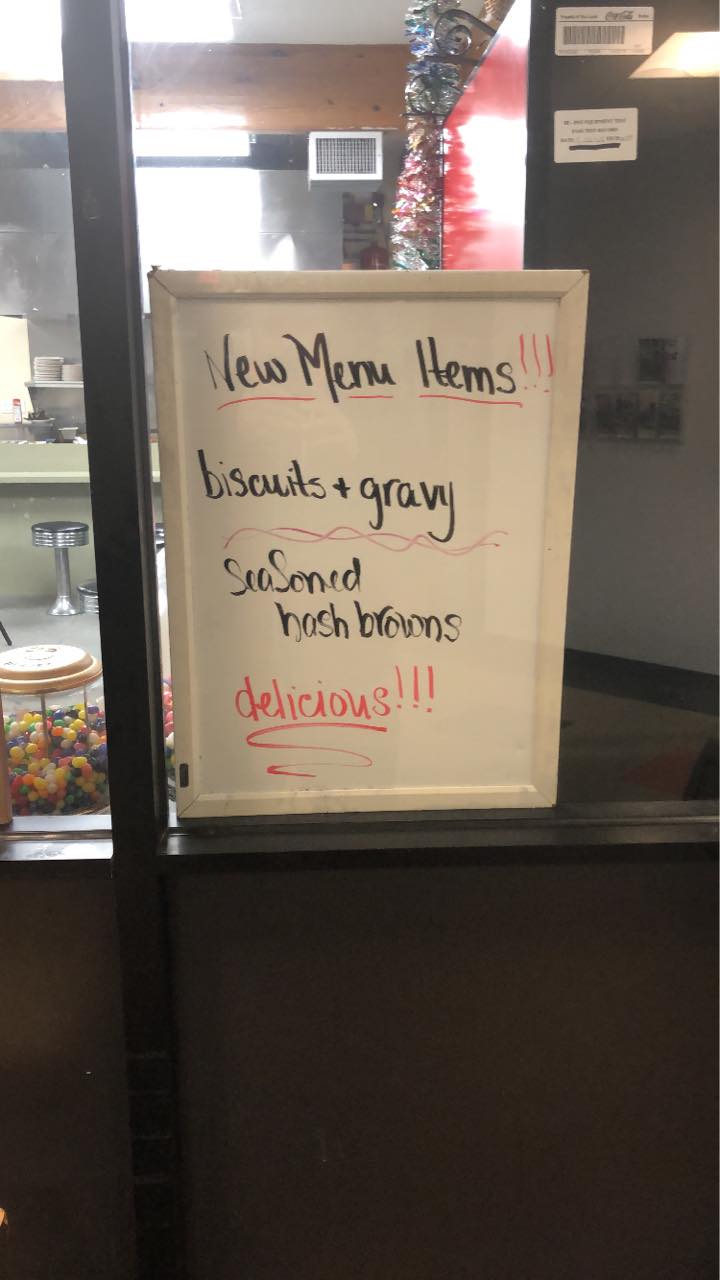 Coca-Cola
New Menu Items!!!
biscuits + gravy
seasoned
hash browns
delicious!!!